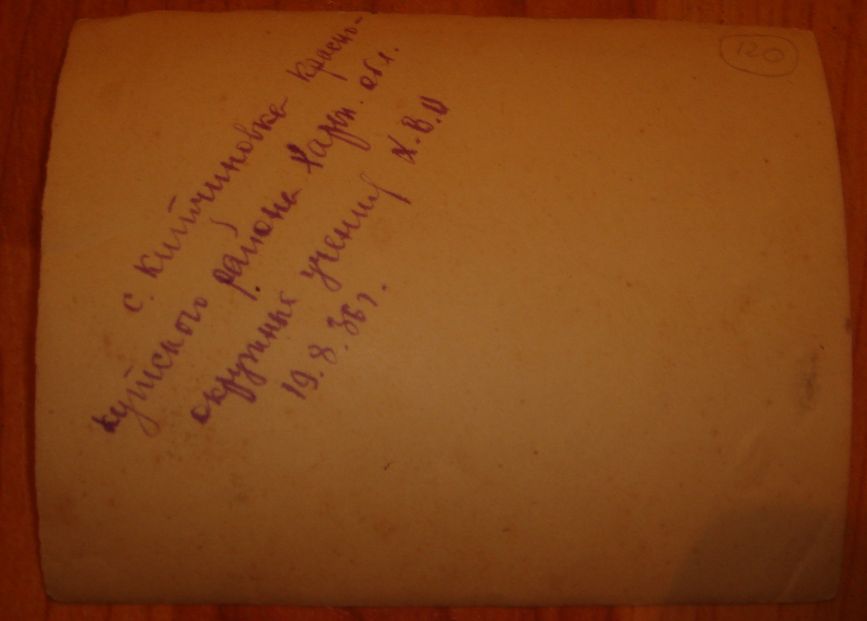 120
с. Китчиновка Красно-
кутского района Харьк. обл.
окружные учения Х.В.О
19.8.36 г.